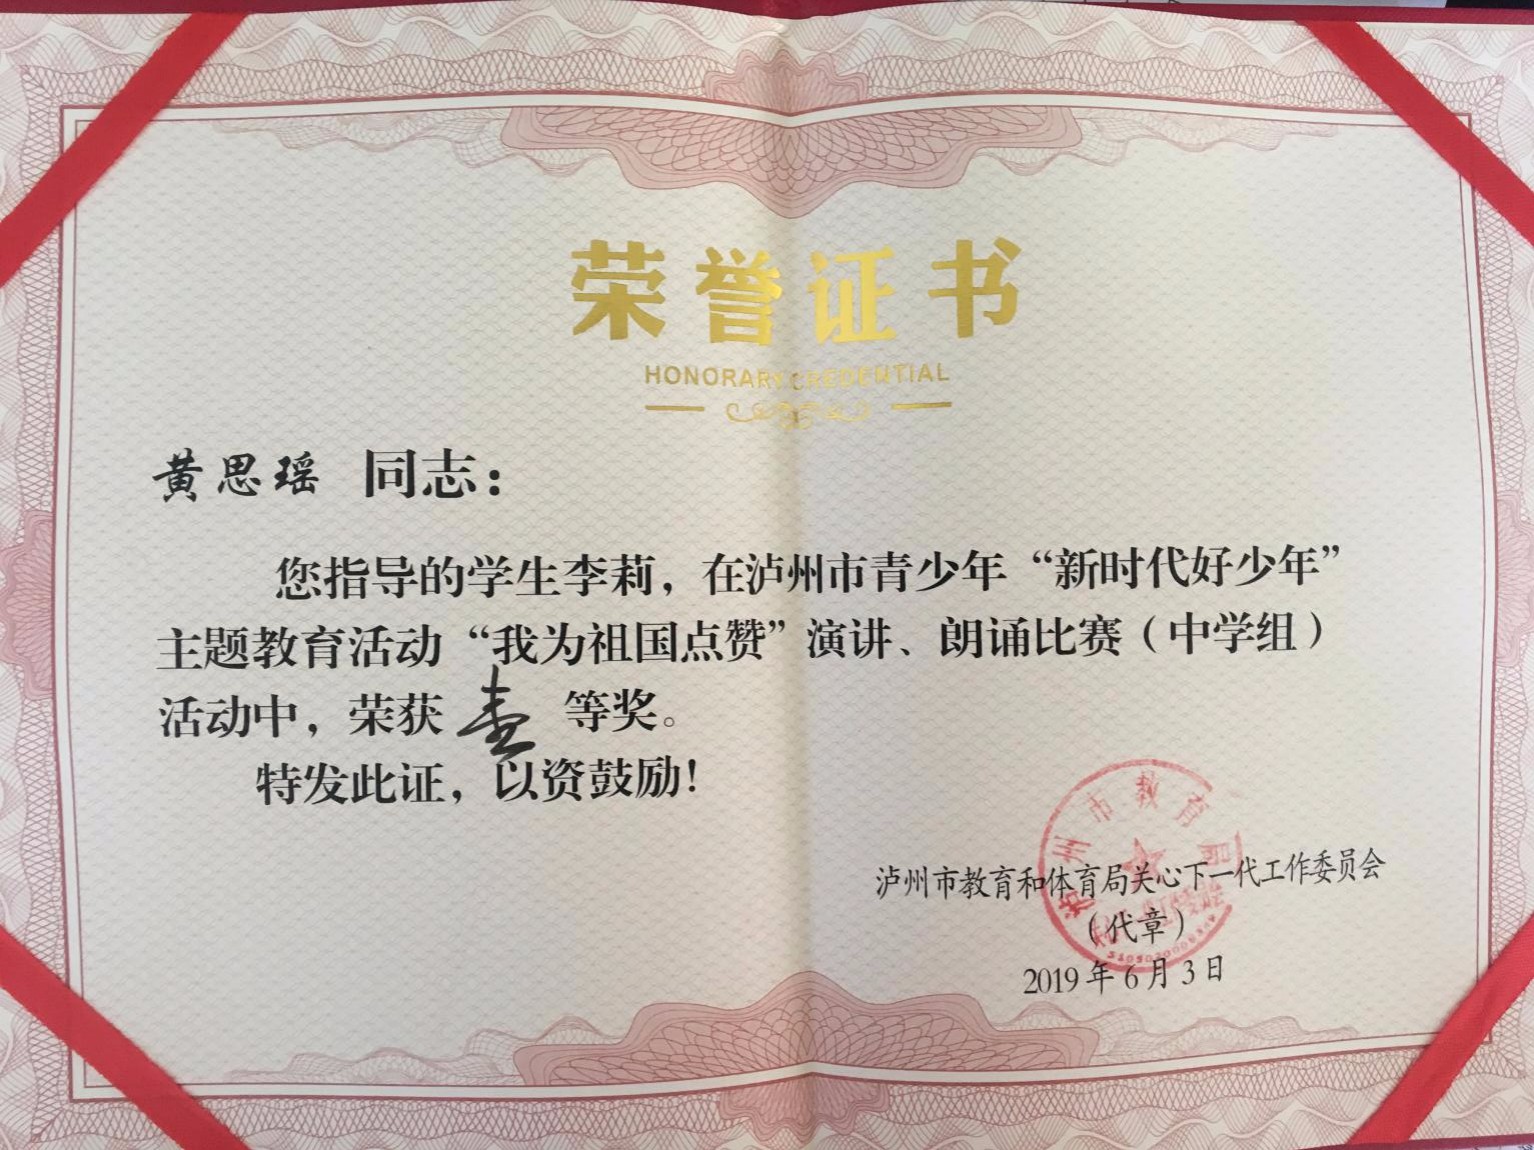 荣誉证书
HONORARY CREDENTIAL
黄思瑶 同志：
您指导的学生李莉，在泸州市青少年“新时代好少年”
主题教育活动“我为祖国点赞”演讲、朗诵比赛（中学组）
活动中，荣获 壹 等奖。
特发此证，以资鼓励！
泸州市教育局
泸州市教育和体育局关心下一代工作委员会
（代章）
2019年6月3日